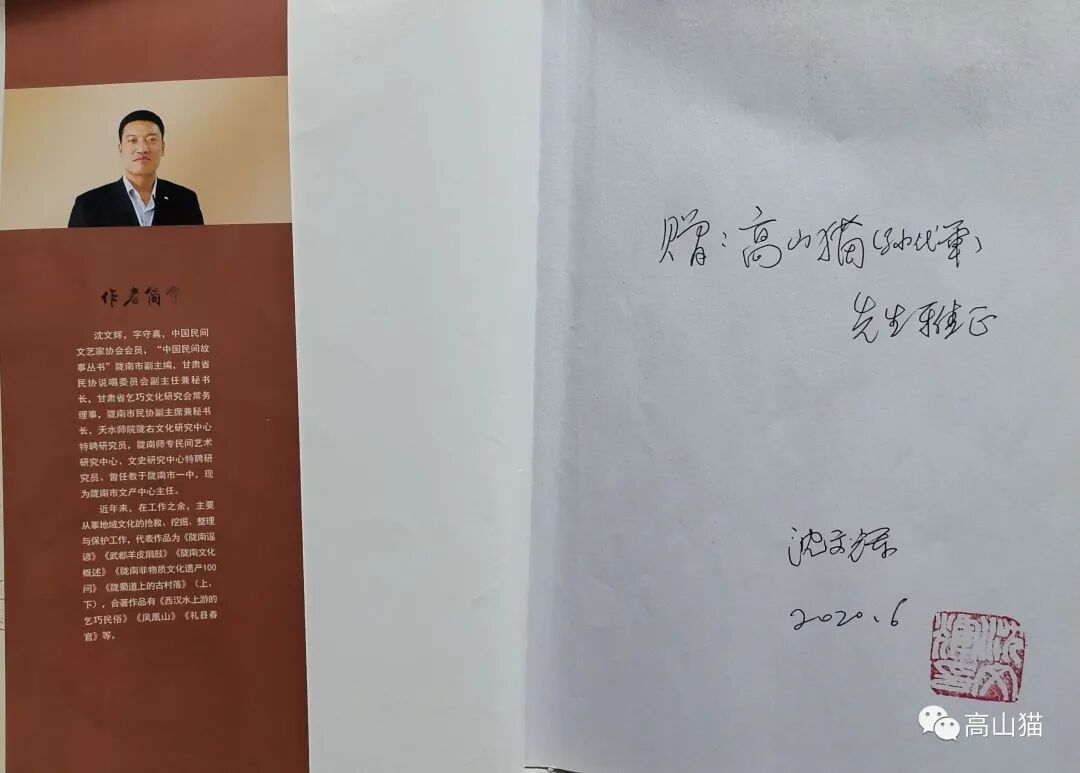 作者简介
沈文辉，字守真，中国民间
文艺家协会会员，“中国民间故
事丛书”陇南市副主编，甘肃省
民协说唱委员会副主任兼秘书
长，甘肃省乞巧文化研究会常务
理事，陇南市民协副主席兼秘书
长，天水师院陇右文化研究中心
特聘研究员，陇南师专民间艺术
研究中心、文史研究中心特聘研
究员。曾任教于陇南市一中，现
为陇南市文产中心主任。
近年来，在工作之余，主要
从事地域文化的抢救、挖掘、整理
与保护工作，代表作品为《陇南谣
谚》《武都羊皮扇鼓》《陇南文化
概述》《陇南非物质文化遗产100
问》《陇蜀道上的古村落》（上、
下），合著作品有《西汉水上游的
乞巧民俗》《凤凰山》《礼县春
官》等。
赠：高山猫（孙代军）
先生雅正
沈文辉
2020.6
沈文辉印
高山猫